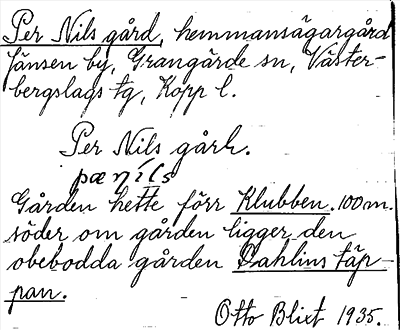 Per Nils gård, hemmansägargård
Jänsen by, Grangärde sn, Väster-
bergslags tg, Kopp l.
Per Nils gård.
Gården hette förr Klubben. 100 m.
söder om gården ligger den
obebodda gården Dahlins täp-
pan.
Otto Blixt 1935.